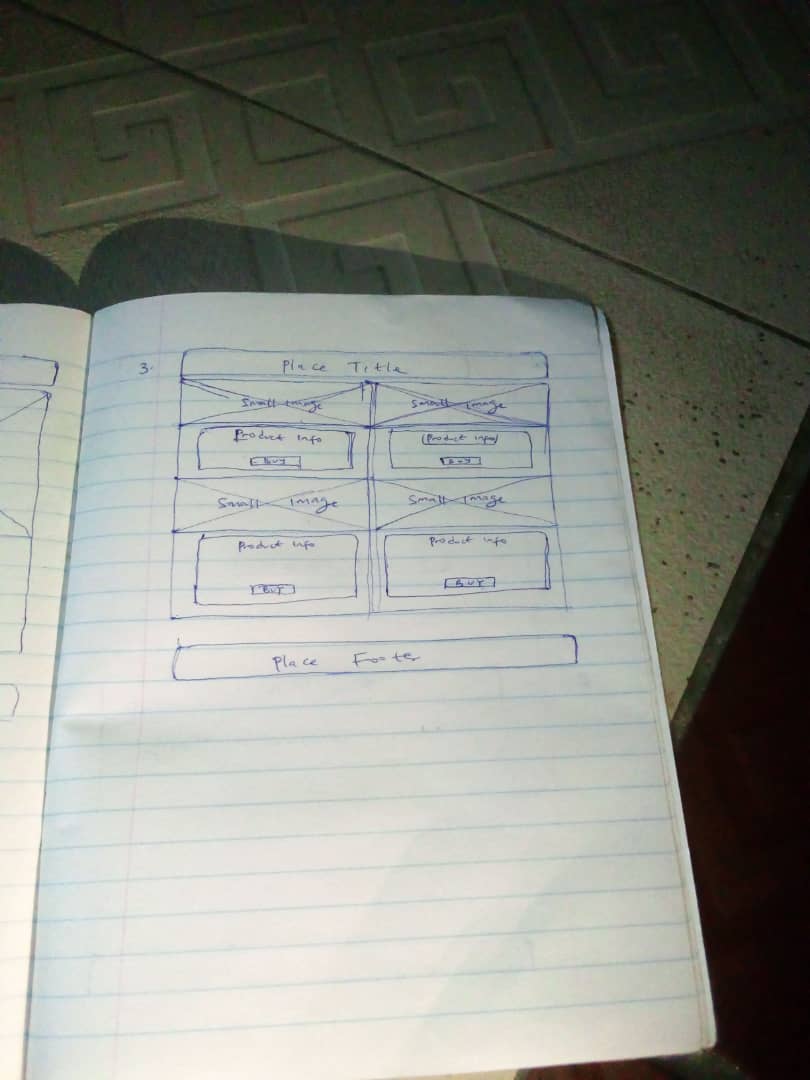 3.
Place Title
Small Image
Small Image
Product info
Product info
BUY
BUY
Small Image
Small Image
Product info
Product info
BUY
BUY
Place Footer